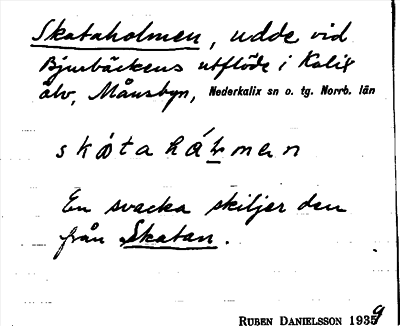 Skataholmen, udde vid
Bjurbäckens utflöde i Kalix
älv, Månsbyn, Nederkalix sn o. tg. Norrb. län
En svacka skiljer den
från Skatan.
RUBEN DANIELSSON 1939